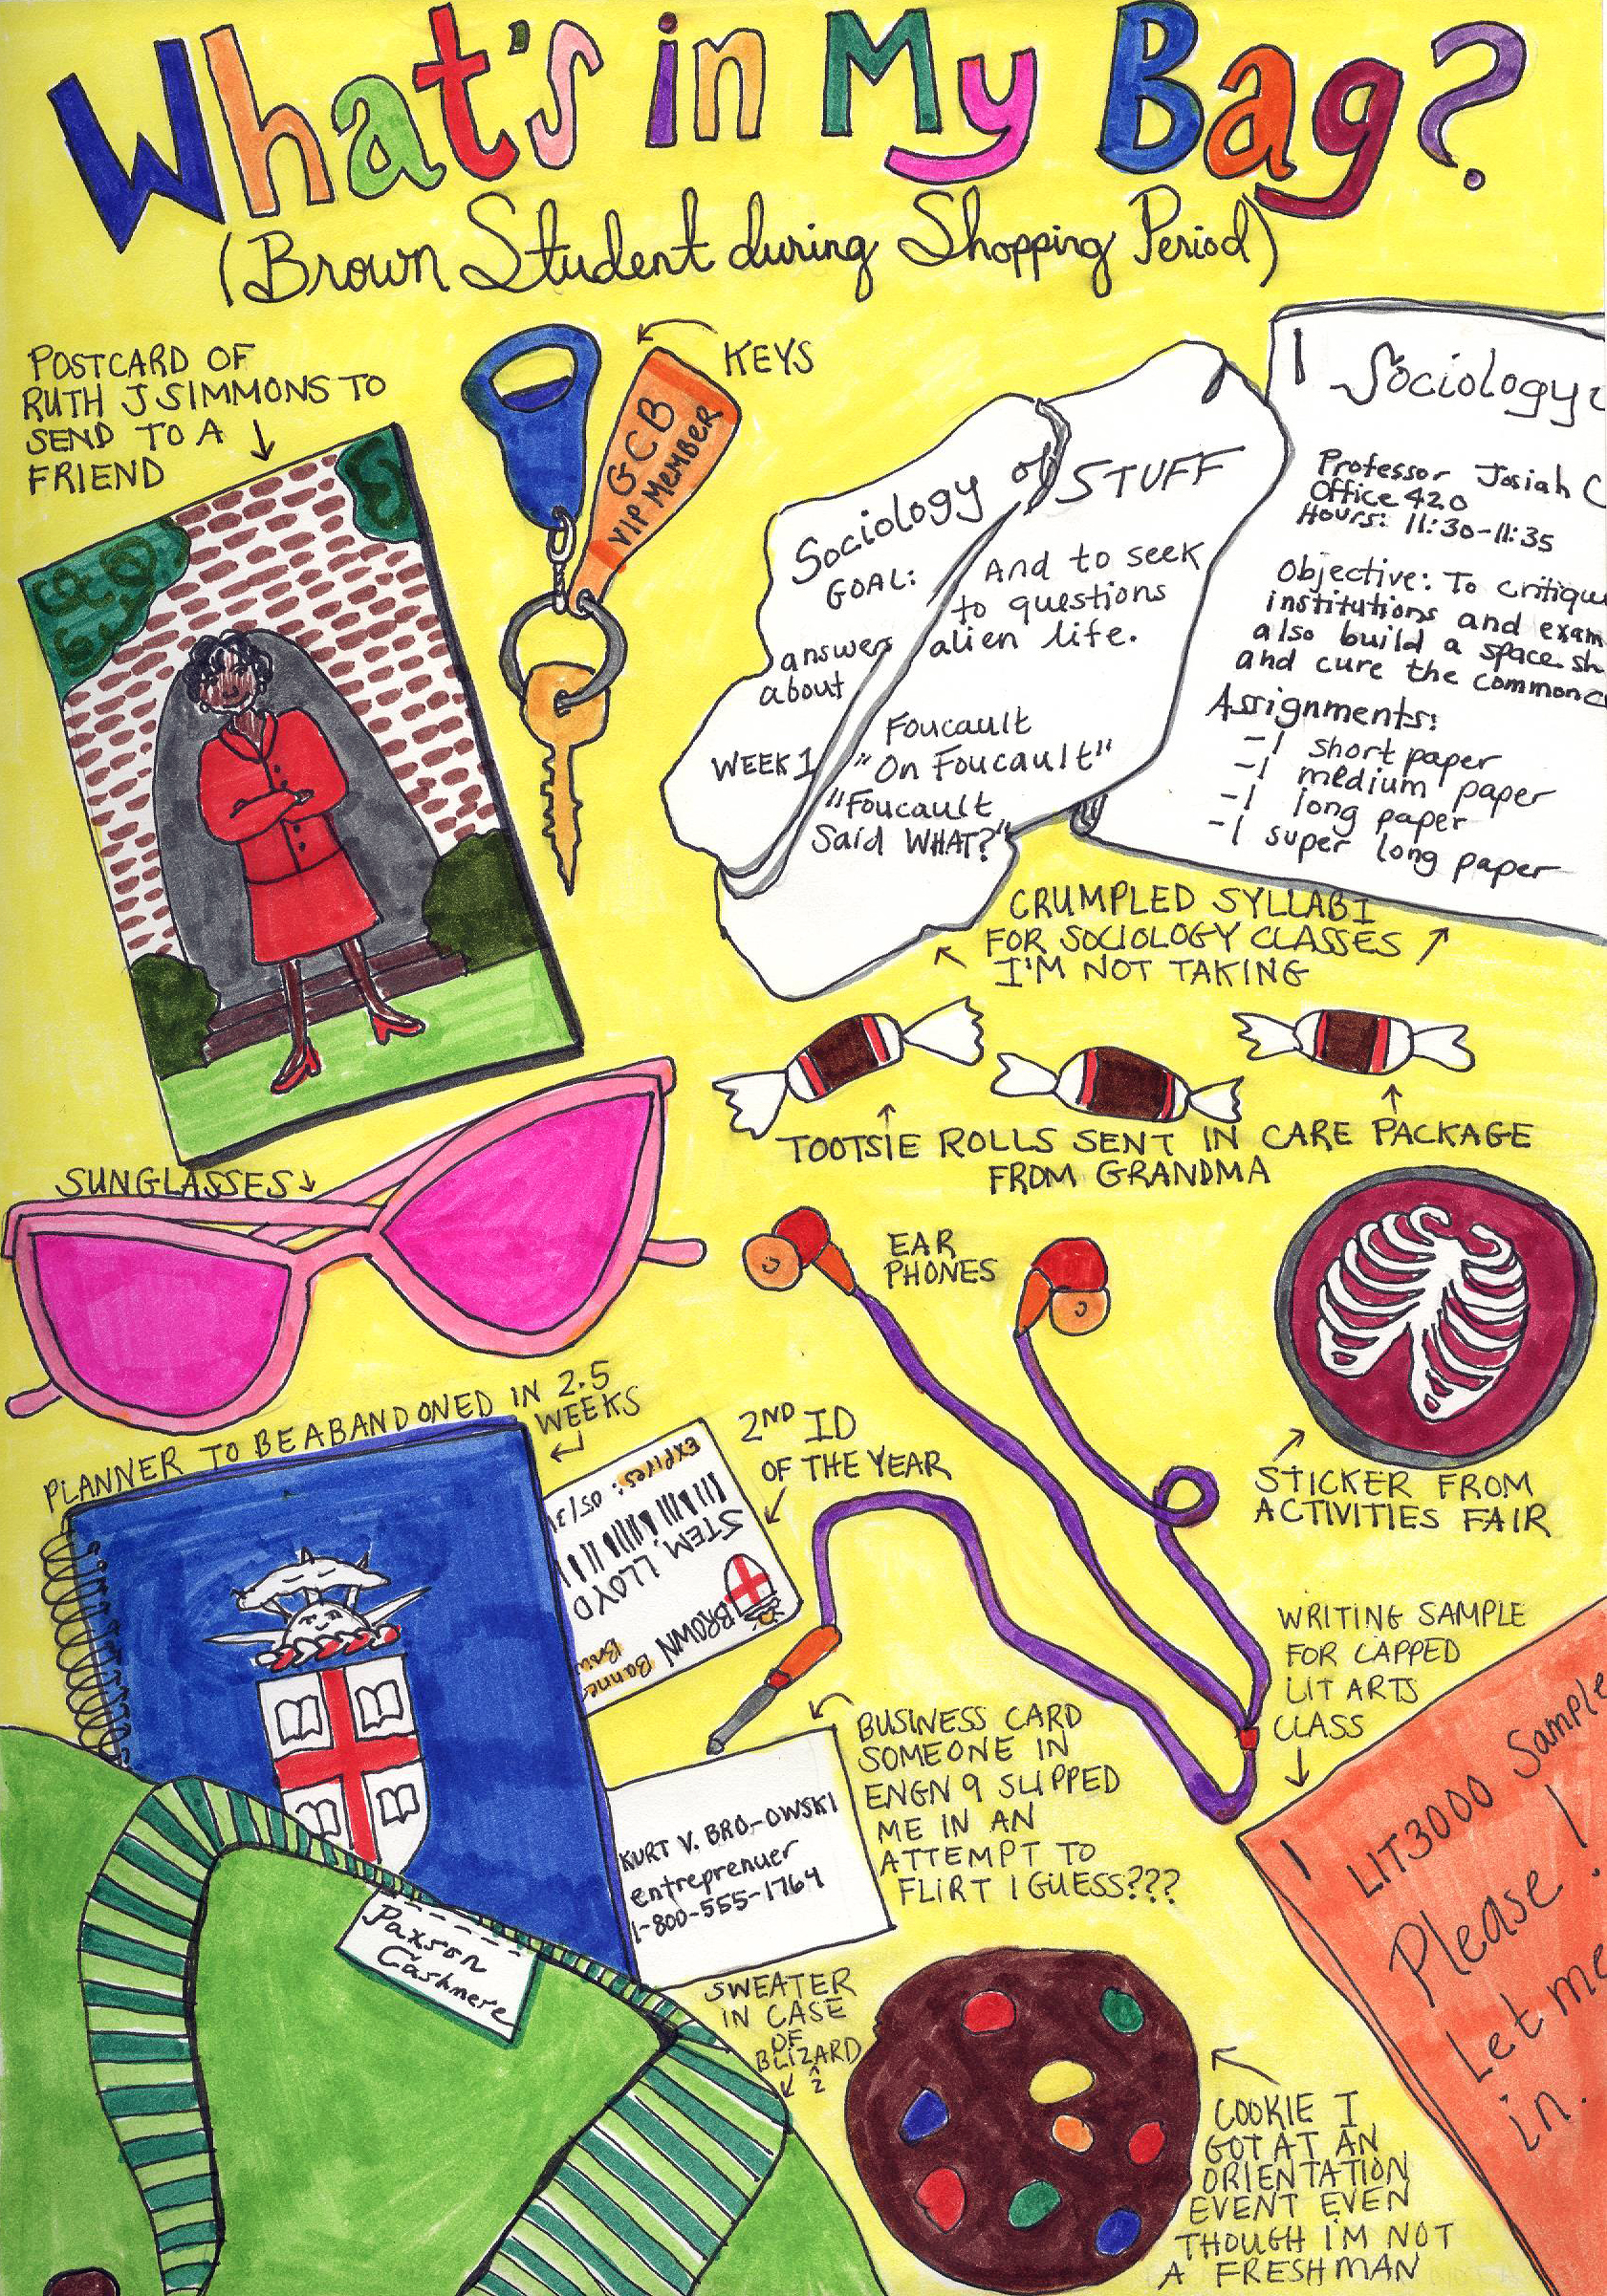 What's in My Bag?
(Brown Student during Shopping Period)
POSTCARD OF
RUTH J SIMMONS TO
SEND TO A
FRIEND
KEYS
GCB
VIP MEMBER
Sociology of STUFF
GOAL: And to seek
answers to questions
about alien life.
WEEK 1 Foucault
"On Foucault"
"Foucault
Said WHAT?"
Sociology
Professor Josiah C
Office 420
Hours: 11:30-11:35
Objective: To critique
institutions and exam
also build a space sh
and cure the common c
Assignments:
-1 short paper
-1 medium paper
-1 long paper
-1 super long paper
CRUMPLED SYLLABI
FOR SOCIOLOGY CLASSES
I'M NOT TAKING
TOOTSIE ROLLS SENT IN CARE PACKAGE
FROM GRANDMA
SUNGLASSES
EAR
PHONES
STICKER FROM
ACTIVITIES FAIR
PLANNER TO BE ABANDONED IN 2.5
WEEKS
2ND ID
OF THE YEAR
Expires: 05/3
STEM, LLOYD
BROWN
Banne
Brow
BUSINESS CARD
SOMEONE IN
ENGN 9 SLIPPED
ME IN AN
ATTEMPT TO
FLIRT I GUESS???
KURT V. BRO-OWSKI
entreprenuer
1-800-555-1764
WRITING SAMPLE
FOR CAPPED
LIT ARTS
CLASS
LIT3000 Sample
Please!
Let me
in.
Paxson
Cashmere
SWEATER
IN CASE
OF
BLIZARD
^
Z
COOKIE I
GOT AT AN
ORIENTATION
EVENT EVEN
THOUGH I'M NOT
A FRESHMAN